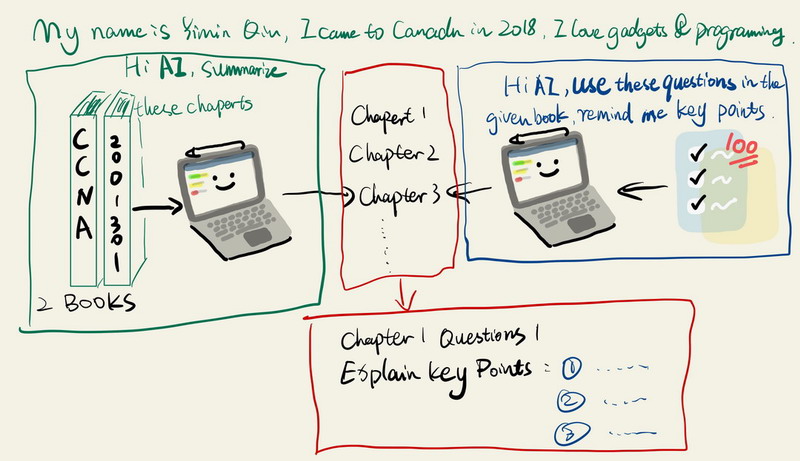 My name is Yimin Qin, I came to Canada in 2018, I love gadgets & programing.
Hi AI, summarize
these chaperts
CCNA
200-301
2 BOOKS
Chapert 1
Chapter 2
Chapter 3
......
Hi AI, use these questions in the
given book, remind me key points.
100
Chapter 1 Questions 1
Explain key Points : ① ......
② .....
③ .....